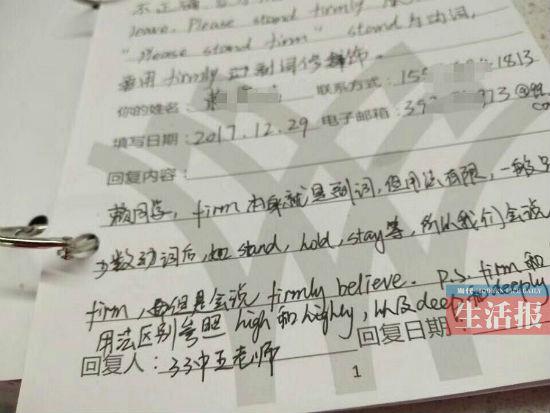 不正确
leave. Please stand firmly
"Please stand firm" stand与动词,
要用firmly 副词修饰。
你的姓名: 赖 联系方式: 155 1813
填写日期: 2017.12.29 电子邮箱: 39 973@qq.
回复内容:
赖同学, firm 本身就是副词, 但用法有限, 一般
少数动词后, 如 stand, hold, stay 等, 所以我们会说
firm, 但是会说 firmly believe. P.S. firm 和
用法区别参照 high 和 highly, 以及 deep deeply
生活报
回复日期
回复人: 33中王老师
1